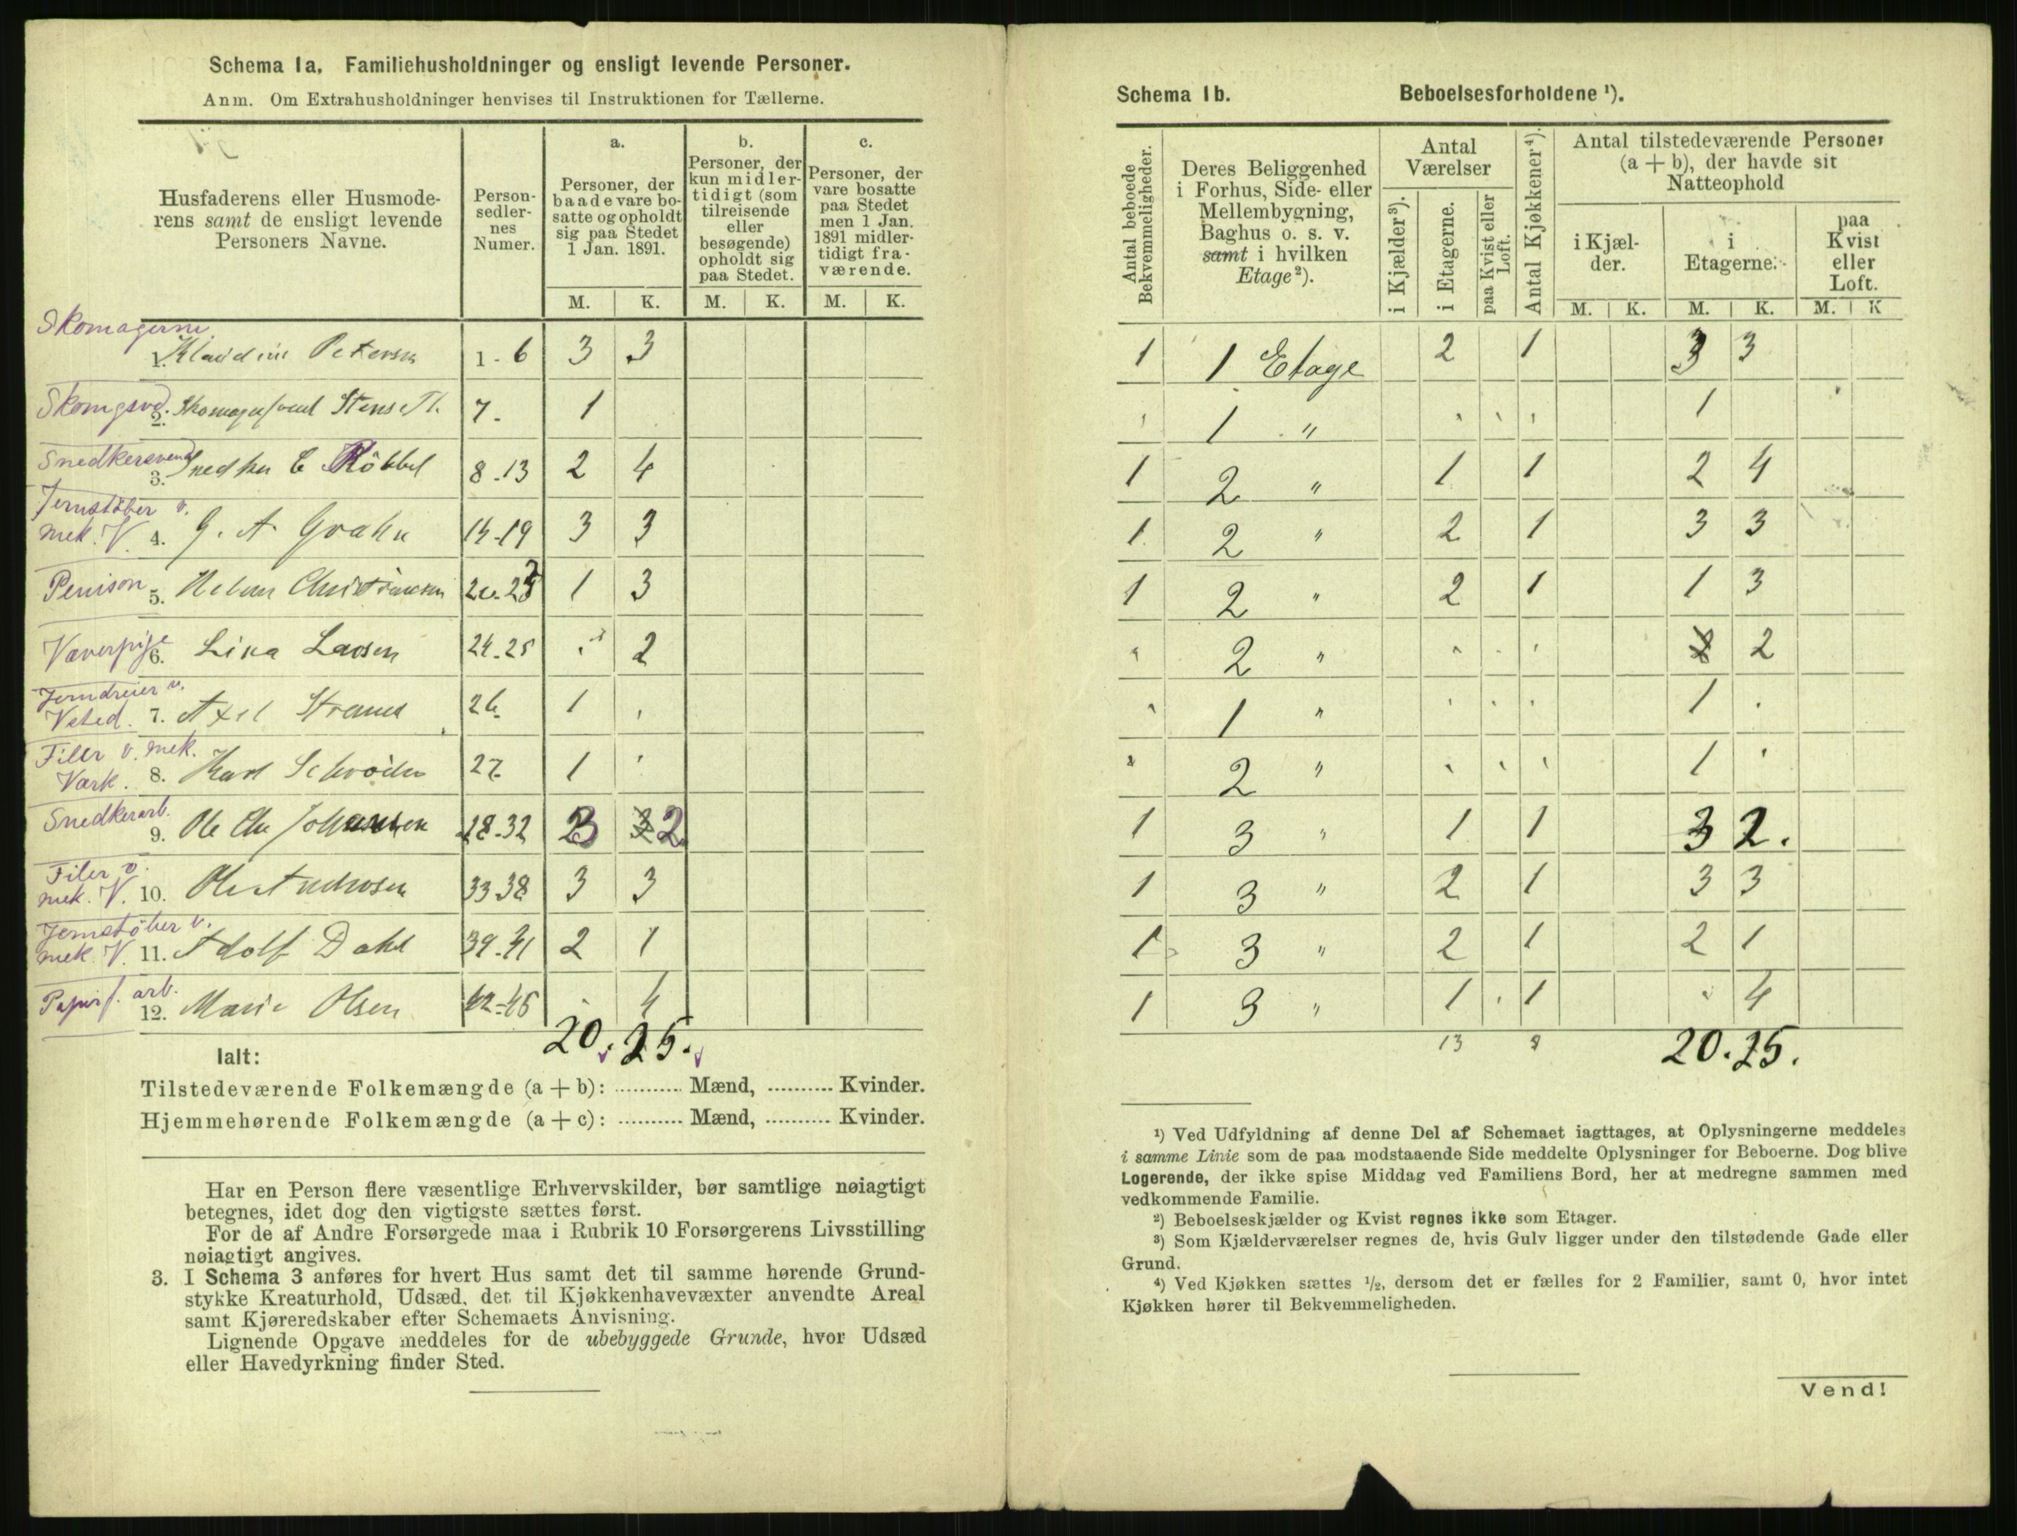 Schema 1a. Familiehusholdninger og ensligt levende Personer.
Anm. Om Extrahusholdninger henvises til Instruktionen for Tællerne.
Husfaderens eller Husmoderens samt de ensligt levende Personers Navne.
Personsedlernes Numer.
a. Personer, der baade vare bosatte og opholdt sig paa Stedet 1 Jan. 1891.
b. Personer, der kun midlertidigt (som tilreisende eller besøgende) opholdt sig paa Stedet.
c. Personer, der vare bosatte paa Stedet men 1 Jan. 1891 midlertidigt fraværende.
M. K. M. K. M. K.
Skomagerm.
1. Petersen 1-6 3 3
Skomgsvd. 2. 7. 1
Snedkersvend 3. Snedker E Röbbel 8-13 2 4
Jernstöber v. mek. V. 4. G. A. Grahn 14-19 3 3
Pension 5. Christiansen 1 3
Væverpige 6. Lina Larsen 24-25 2
Jerndreier v. Vsted. 7. Axel 26 1
Filer v. mek. Værk. 8. Karl Schröder 27 1
Snedkerarb. 9. Ole Chr Johansen 28-32 3 2
Filer v. mek. V. 10. Ole Andersen 33-38 3 3
Jernstöber v. mek. V. 11. Adolf Dahl 39-41 2 1
Papirf. arb. 12. Marie Olsen 42-45 4
20. 25.
Ialt:
Tilstedeværende Folkemængde (a + b): ........... Mænd, .......... Kvinder.
Hjemmehørende Folkemængde (a + c): .......... Mænd, .......... Kvinder.
Har en Person flere væsentlige Erhvervskilder, bør samtlige nøiagtigt
betegnes, idet dog den vigtigste sættes først.
For de af Andre Forsørgede maa i Rubrik 10 Forsørgerens Livsstilling
nøiagtigt angives.
3. I Schema 3 anføres for hvert Hus samt det til samme hørende Grund-
stykke Kreaturhold, Udsæd, det til Kjøkkenhavevæxter anvendte Areal
samt Kjøreredskaber efter Schemaets Anvisning.
Lignende Opgave meddeles for de ubebyggede Grunde, hvor Udsæd
eller Havedyrkning finder Sted.
Schema 1b. Beboelsesforholdene ¹).
Antal beboede Bekvemmeligheder.
Deres Beliggenhed i Forhus, Side- eller Mellembygning, Baghus o. s. v. samt i hvilken Etage²).
Antal Værelser
i Kjælder³).
i Etagerne.
paa Kvist eller Loft.
Antal Kjøkkener⁴).
Antal tilstedeværende Personer (a + b), der havde sit Natteophold
i Kjælder.
i Etagerne.
paa Kvist eller Loft.
M. K. M. K. M. K
1 1 Etage 2 1 3 3
1 " 1
1 2 " 1 1 2 4
1 2 " 2 1 3 3
1 2 " 2 1 1 3
" 2 " 2
" 1 " 1
" 2 " 1
1 3 " 1 1 3 2.
1 3 " 2 1 3 3
1 3 " 2 1 2 1
1 3 " 1 1 4
13 20. 25.
¹) Ved Udfyldning af denne Del af Schemaet iagttages, at Oplysningerne meddeles
i samme Linie som de paa modstaaende Side meddelte Oplysninger for Beboerne. Dog blive
Logerende, der ikke spise Middag ved Familiens Bord, her at medregne sammen med
vedkommende Familie.
²) Beboelseskjælder og Kvist regnes ikke som Etager.
³) Som Kjælderværelser regnes de, hvis Gulv ligger under den tilstødende Gade eller
Grund.
⁴) Ved Kjøkken sættes ½, dersom det er fælles for 2 Familier, samt 0, hvor intet
Kjøkken hører til Bekvemmeligheden.
Vend!